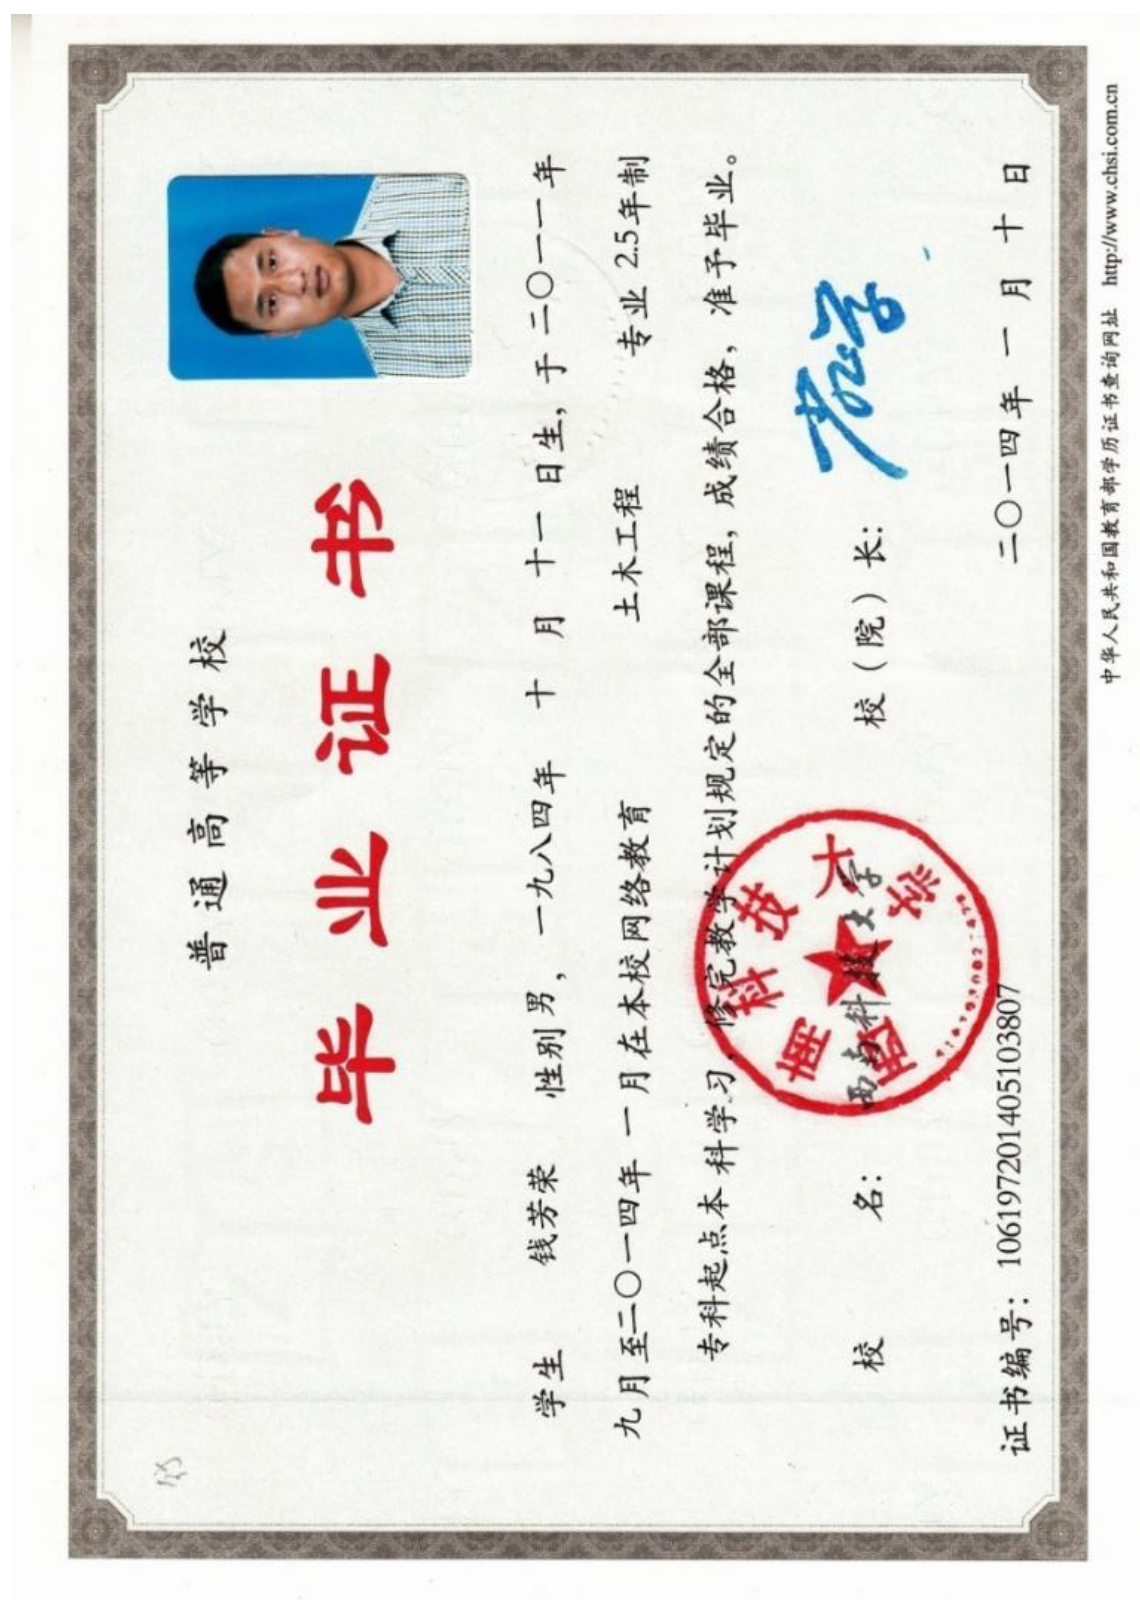 普通高等学校
毕业证书
学生 钱芳荣 性别男，一九八四年 十 月 十一 日生，于二〇一一年
九月至二〇一四年 一月在本校网络教育 土木工程 专业 2.5年制
专科起点本科学习，修完教学计划规定的全部课程，成绩合格，准予毕业。
校 名： 西南科技大学 校（院）长：
西南科技大学
证书编号： 106197201405103807 二〇一四年 一 月 十 日
中华人民共和国教育部学历证书查询网址 http://www.chsi.com.cn